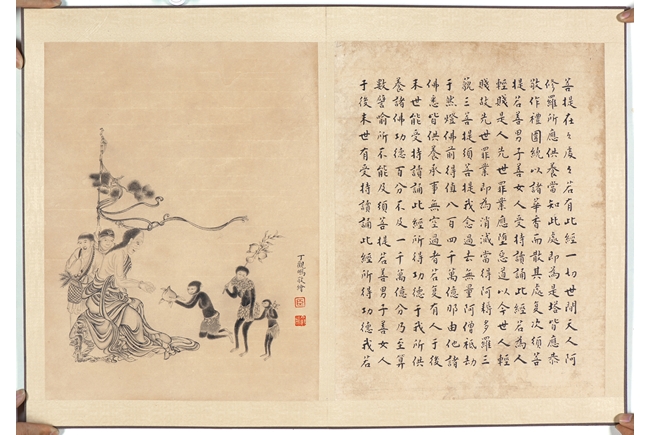 菩提在々處々若有此經一切世間天人阿
修羅所應供養當知此處即為是塔皆應恭
敬作禮圍繞以諸華香而散其處復次須菩
提若善男子善女人受持讀誦此經若為人
輕賤是人先世罪業應墮惡道以今世人輕
賤故先世罪業即為消滅當得阿耨多羅三
藐三菩提須菩提我念過去無量阿僧祇劫
于然燈佛前得值八百四千萬億那由他諸
佛悉皆供養承事無空過者若復有人于後
末世能受持讀誦此經所得功德于我所供
養諸佛功德百分不及一千萬億分乃至算
數譬喻所不能及須菩提若善男子善女人
于後末世有受持讀誦此經所得功德我若
丁觀鵬敬繪